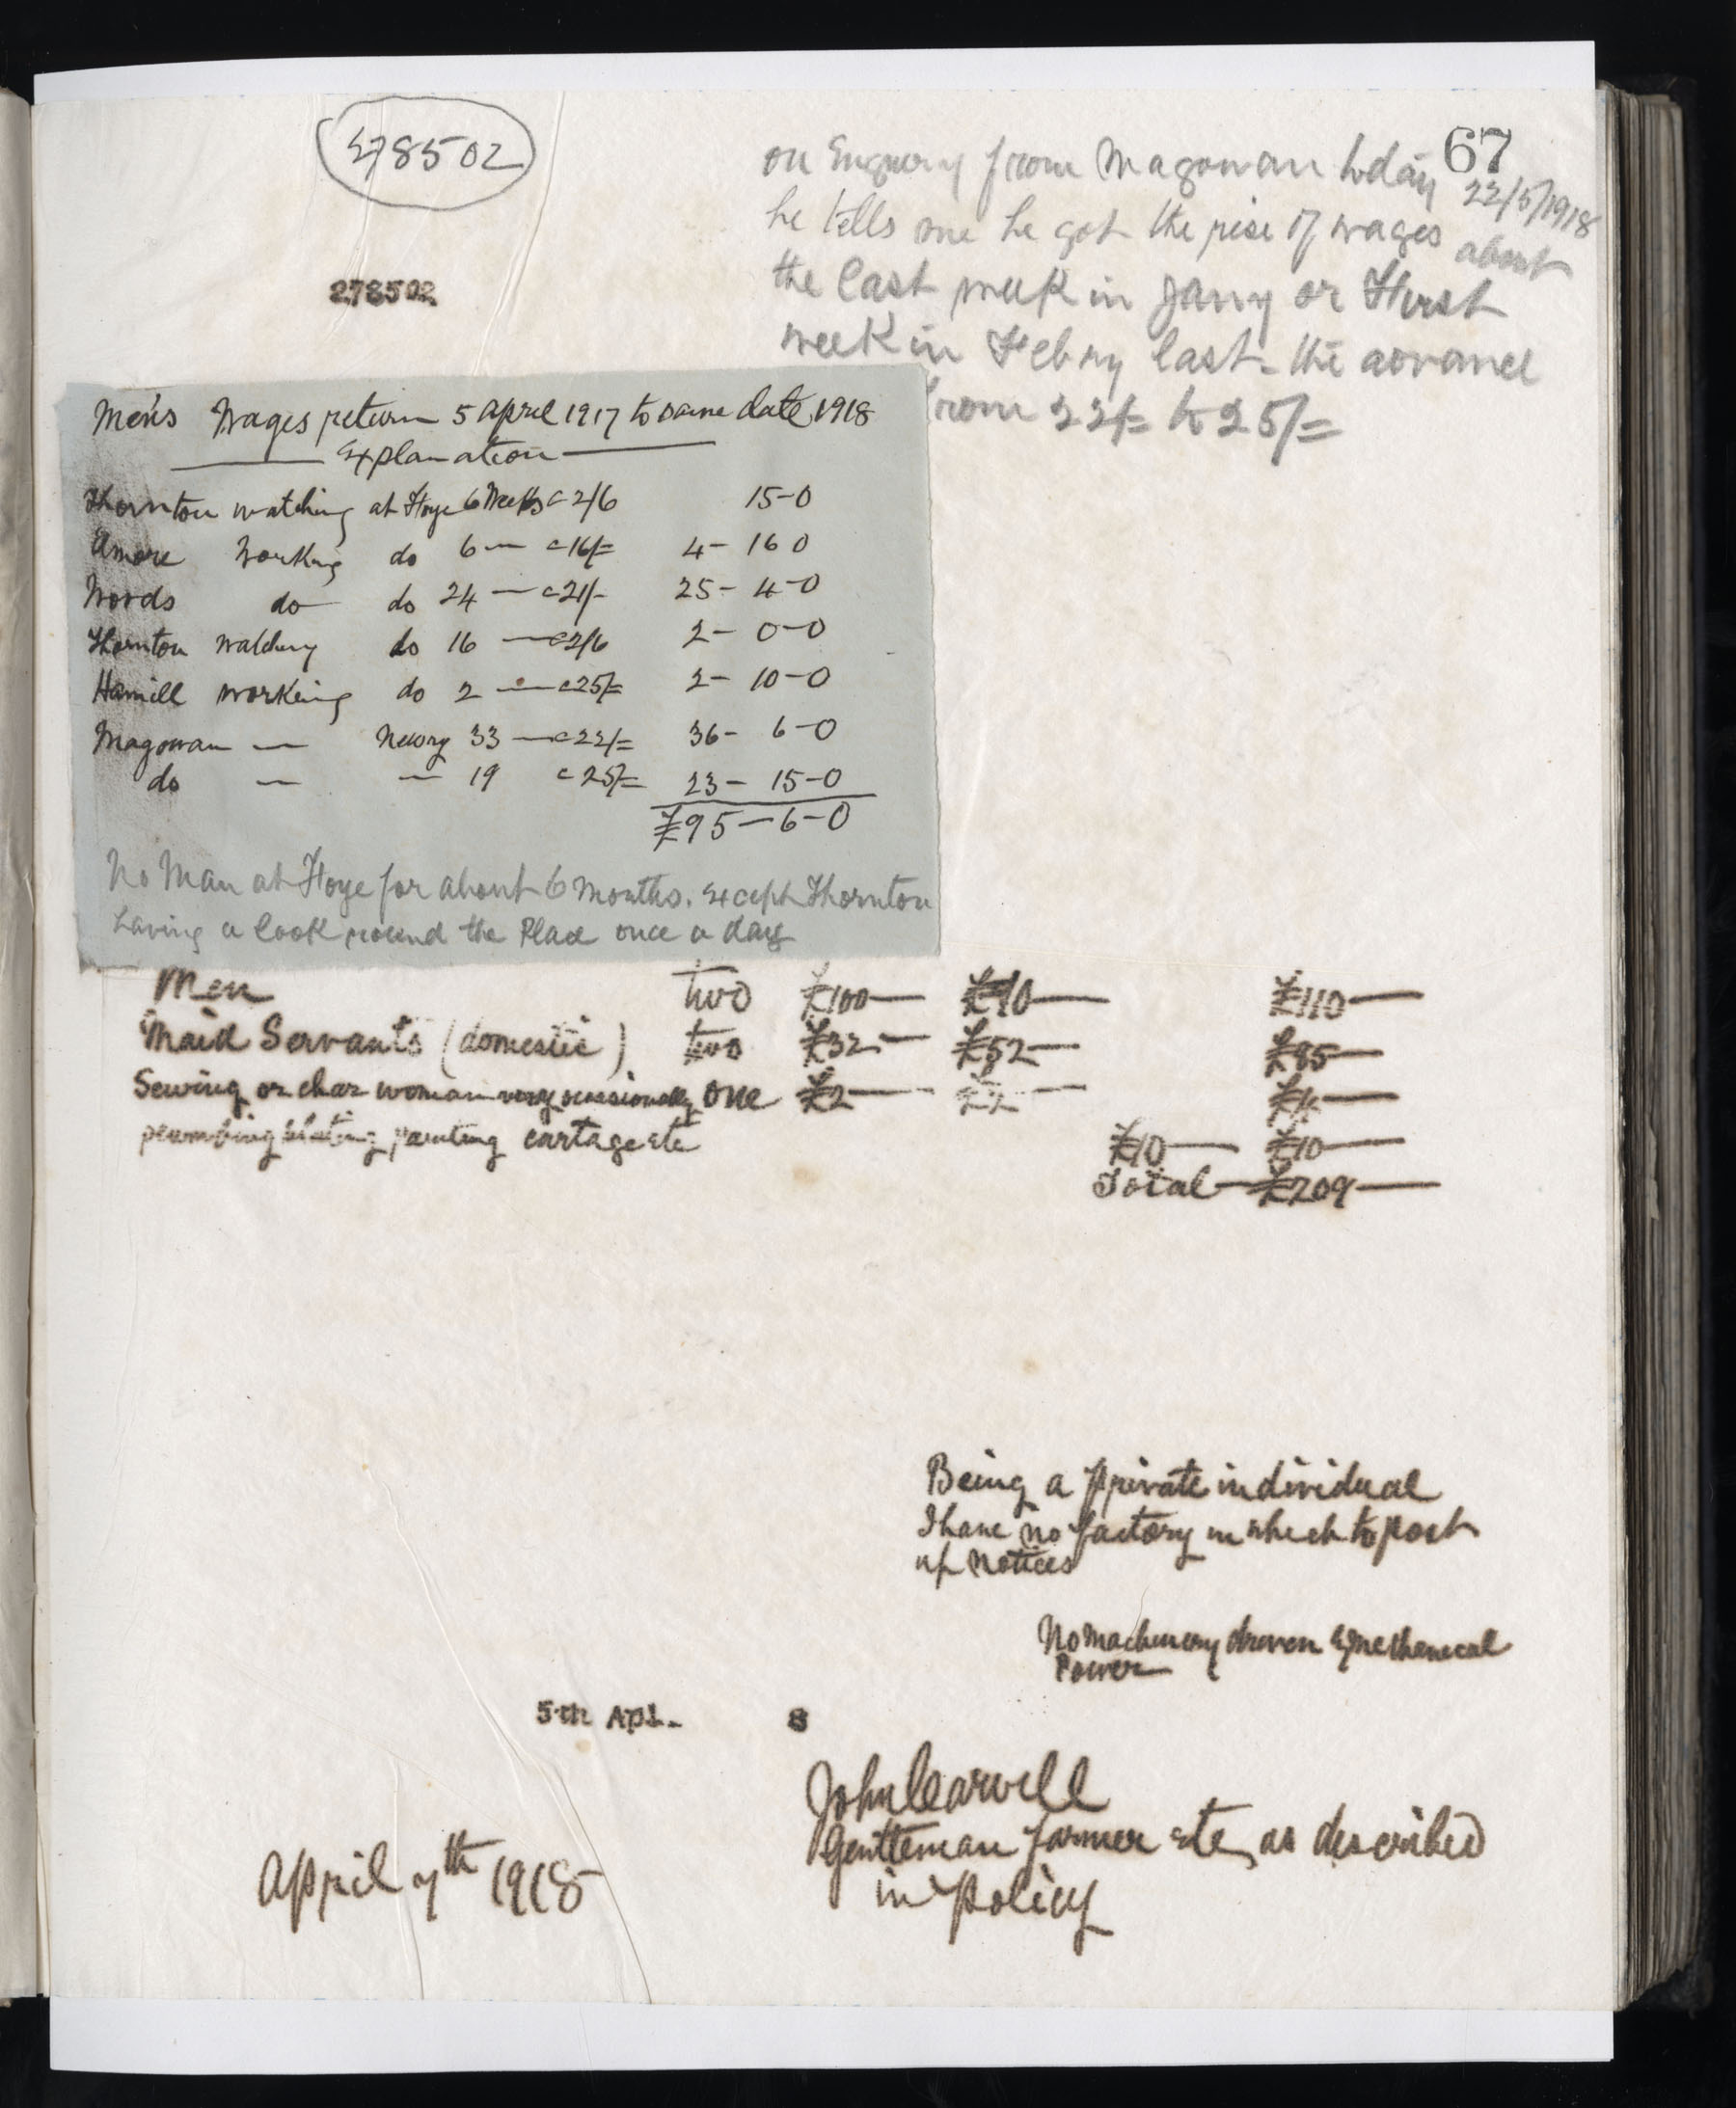 278502
67
on Enquiry from Magowan today 22/5/1918
he tells me he got the rise of wages about
the last week in Jany or First
week in Febry last - the advance
from 22/= to 25/=
278502
Men's Wages return 5 April 1917 to same date 1918
Explanation
Thornton watching at Hoye 6 Weeks @ 2/6 15-0
Amore Working do 6 — @ 16/= 4-16 0
Woods do do 24 — @ 21/- 25-4-0
Thornton Watching do 16 — @ 2/6 2-0-0
Hamill working do 2 — @ 25/= 2-10-0
Magowan — Newry 33 — @ 22/= 36-6-0
do — — 19 @ 25/= 23-15-0
£95-6-0
No Man at Hoye for about 6 Months. Except Thornton
having a look round the Place once a day
Men two £100— £10— £110—
Maid Servants (domestic) two £32— £52— £85—
Sewing or char woman very ocassionally one £2— £2— £4—
plumbing slating painting cartage etc £10— £10—
Total—£209—
Being a private individual
I have no factory in which to post
up notices
No machinery driven by mechanical
Power
5th Apl. 8
John Carvill
Gentleman farmer etc, as described
in Policy
April 7th 1918